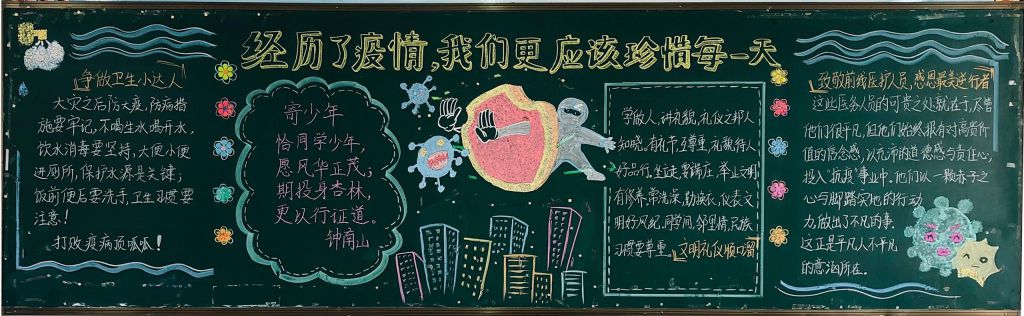 经历了疫情,我们更应该珍惜每一天
争做卫生小达人
大灾之后防大疫,防病措
施要牢记,不喝生水喝开水,
饮水消毒要坚持,大便小便
进厕所,保护水源是关键;
饭前便后要洗手,卫生习惯要
注意!
打败疫病顶呱呱!
寄少年
恰同学少年,
愿风华正茂;
期投身杏林,
更以行征道。
钟南山
学做人,讲礼貌,礼仪之邦人
知晓,有礼节,互尊重,礼貌待人
好品行,坐边走要端庄,举止文明
有修养,常洗澡,勤换衣,仪表文
明好风纪,同学间,邻里情,民族
习惯要尊重。文明礼仪顺口溜
致敬前线医护人员,感恩最美逆行者
这些医务人员的可贵之处就在于,尽管
他们很平凡,但他们始终抱有对高贵价
值的信念感,以无沛的道德感与责任心,
投入“抗疫”事业中,他们以一颗赤子之
心与脚踏实地的行动
力,做出了不凡的事.
这正是平凡人不平凡
的意涵所在.